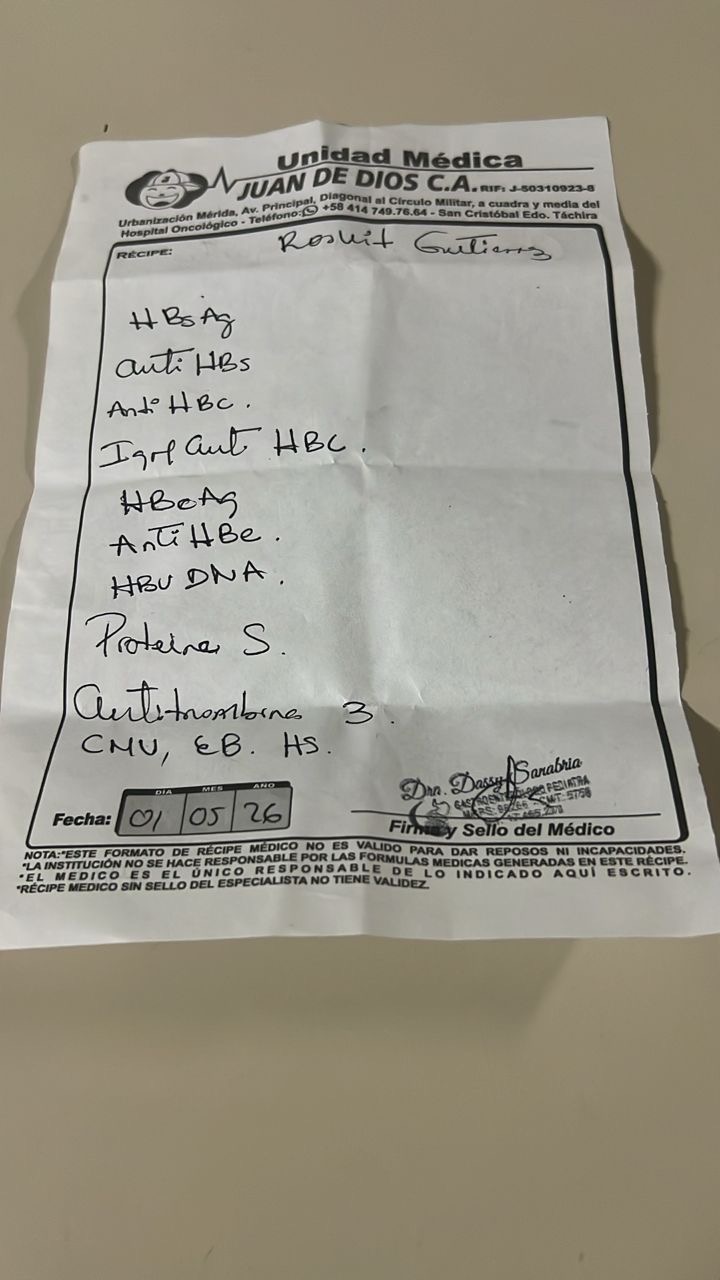 Unidad Médica
JUAN DE DIOS C.A. RIF: J-50310923-8
Urbanización Mérida, Av. Principal, Diagonal al Círculo Militar, a cuadra y media del
Hospital Oncológico - Teléfono: +58 414 749.76.64 - San Cristóbal Edo. Táchira
RÉCIPE:
Gutierrez
HBsAg
anti HBs
Anti HBC.
IgM anti HBC.
HBeAg
Anti HBe.
HBV DNA.
Proteina S.
Antitrombina 3.
CMV, EB. HS.
Dra. Dassy Sanabria
GASTROENTEROLOGO PEDIATRA
DIA MES AÑO
Fecha: 01 05 26
Firma y Sello del Médico
NOTA:*ESTE FORMATO DE RÉCIPE MÉDICO NO ES VALIDO PARA DAR REPOSOS NI INCAPACIDADES.
*LA INSTITUCIÓN NO SE HACE RESPONSABLE POR LAS FORMULAS MEDICAS GENERADAS EN ESTE RÉCIPE.
*EL MEDICO ES EL ÚNICO RESPONSABLE DE LO INDICADO AQUÍ ESCRITO.
*RÉCIPE MEDICO SIN SELLO DEL ESPECIALISTA NO TIENE VALIDEZ.